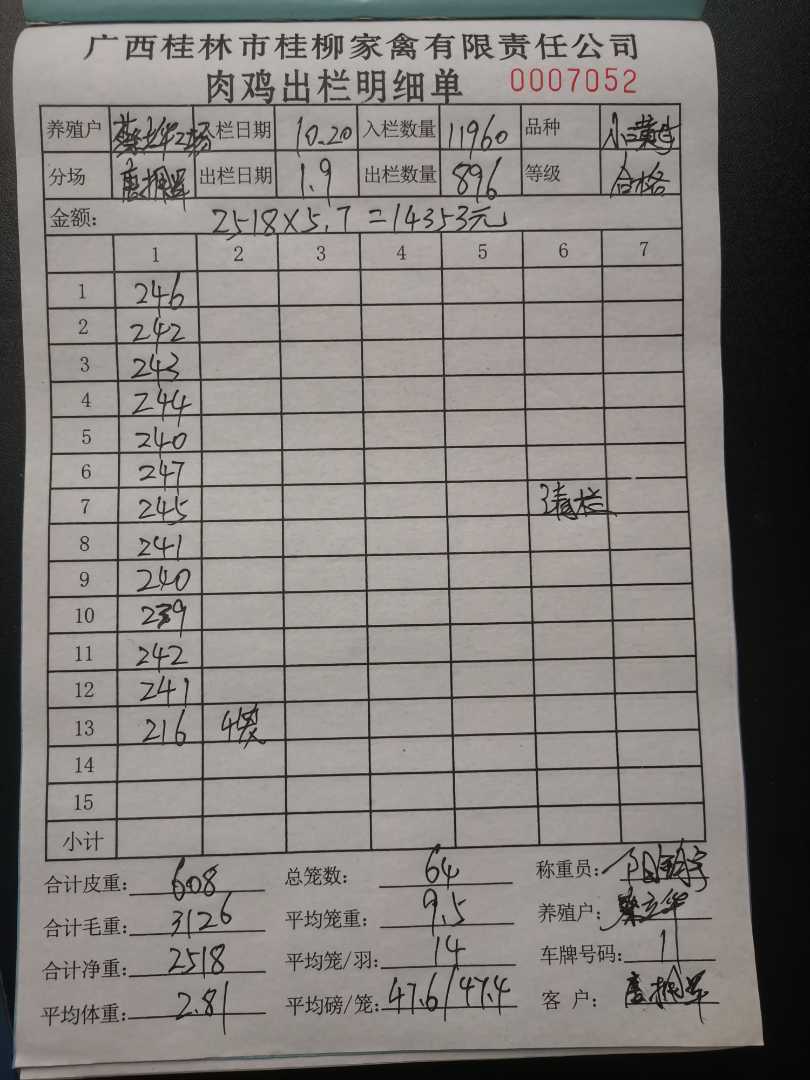 广西桂林市桂柳家禽有限责任公司
肉鸡出栏明细单 0007052
养殖户 蔡立华2场 入栏日期 10.20 入栏数量 11960 品种
分场 唐振军 出栏日期 1.9 出栏数量 896 等级 合格
金额: 2518×5.7=14353元
1 2 3 4 5 6 7
1 246
2 242
3 243
4 244
5 240
6 247
7 245 清栏
8 241
9 240
10 239
11 242
12 241
13 216 4笼
14
15
小计
合计皮重: 608 总笼数: 64 称重员:
合计毛重: 3126 平均笼重: 9.5 养殖户: 蔡立华
合计净重: 2518 平均笼/羽: 14 车牌号码: 1
平均体重: 2.81 平均磅/笼: 47.6/47.4 客户: 唐振军